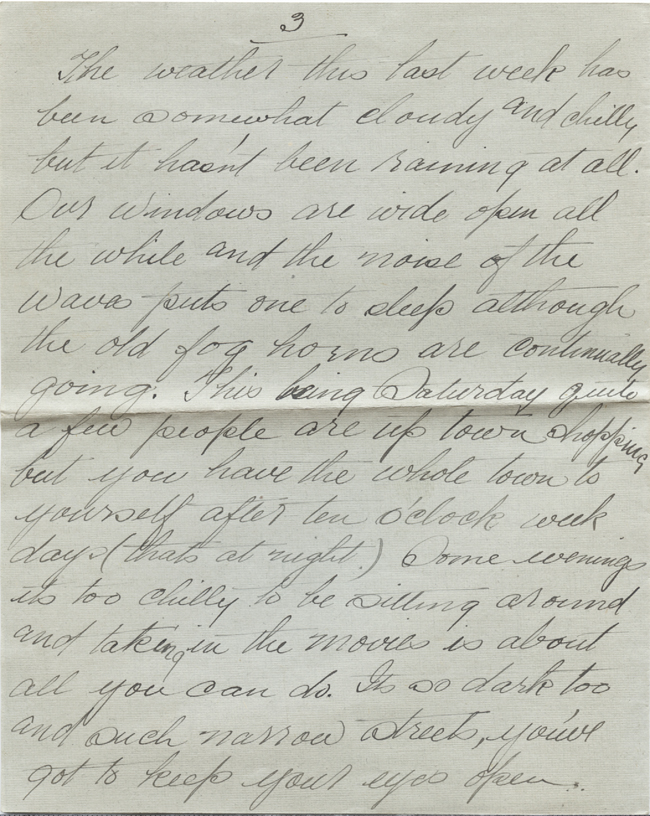 3
The weather this last week has
been somewhat cloudy and chilly
but it hasn't been raining at all.
Our windows are wide open all
the while and the noise of the
waves puts one to sleep although
the old fog horns are continually
going. This being Saturday quite
a few people are up town shopping
but you have the whole town to
yourself after ten o'clock week
days (thats at night.) Some evenings
its too chilly to be sitting around
and taking in the movies is about
all you can do. Its so dark too
and such narrow streets, you've
got to keep your eyes open.